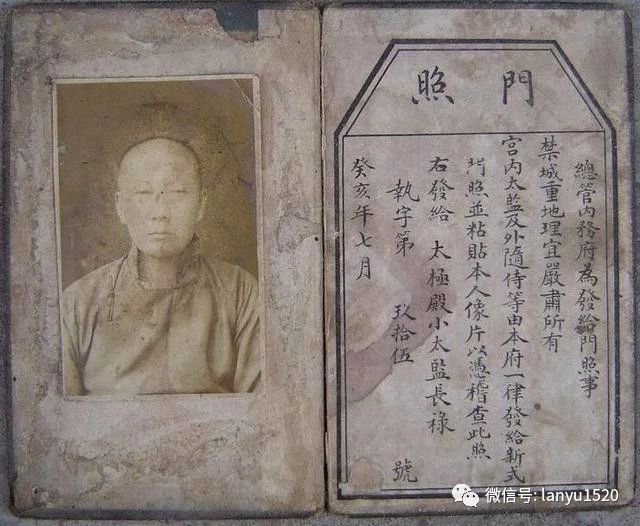 門照
總管內務府為發給門照事
禁城重地理宜嚴肅所有
宮內太監及外隨侍等由本府一律發給新式
門照並粘貼本人像片以憑稽查此照
右發給 太極殿小太監長祿
執字第 玖拾伍 號
癸亥年七月
微信号: lanyu1520